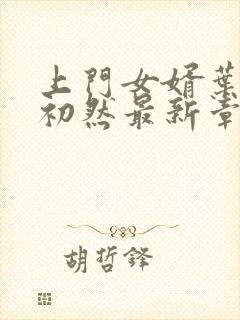 上門女婿葉
初然最新章
胡哲鋒